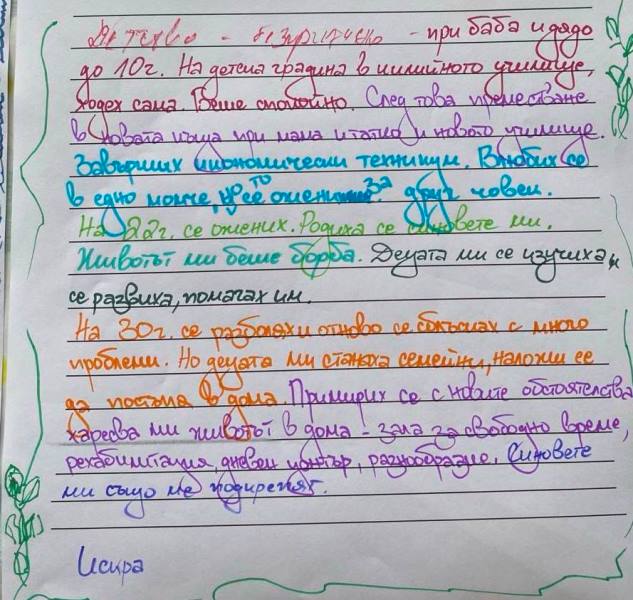 Детство - безгрижно - при баба и дядо
до 10г. На детска градина в килийното училище,
ходех сама. Беше спокойно. След това преместване
в новата къща при мама и татко и новото училище.
Завърших икономически техникум. Влюбих се
в едно момче, то се ожени за друг човек.
На 22г. се омених. Родиха се синовете ми.
Животът ми беше борба. Децата ми се изучиха и
се развиха, помагах им.
На 30г. се разболях и отново се сблъсках с много
проблеми. Но децата ми станаха семейни, наложи се
да постъпя в дома. Примирих се с новите обстоятелства
харесва ми животът в дома - зала за свободно време,
рехабилитация, дневен център, разнообразие. Синовете
ми също ме подкрепят.
Искра